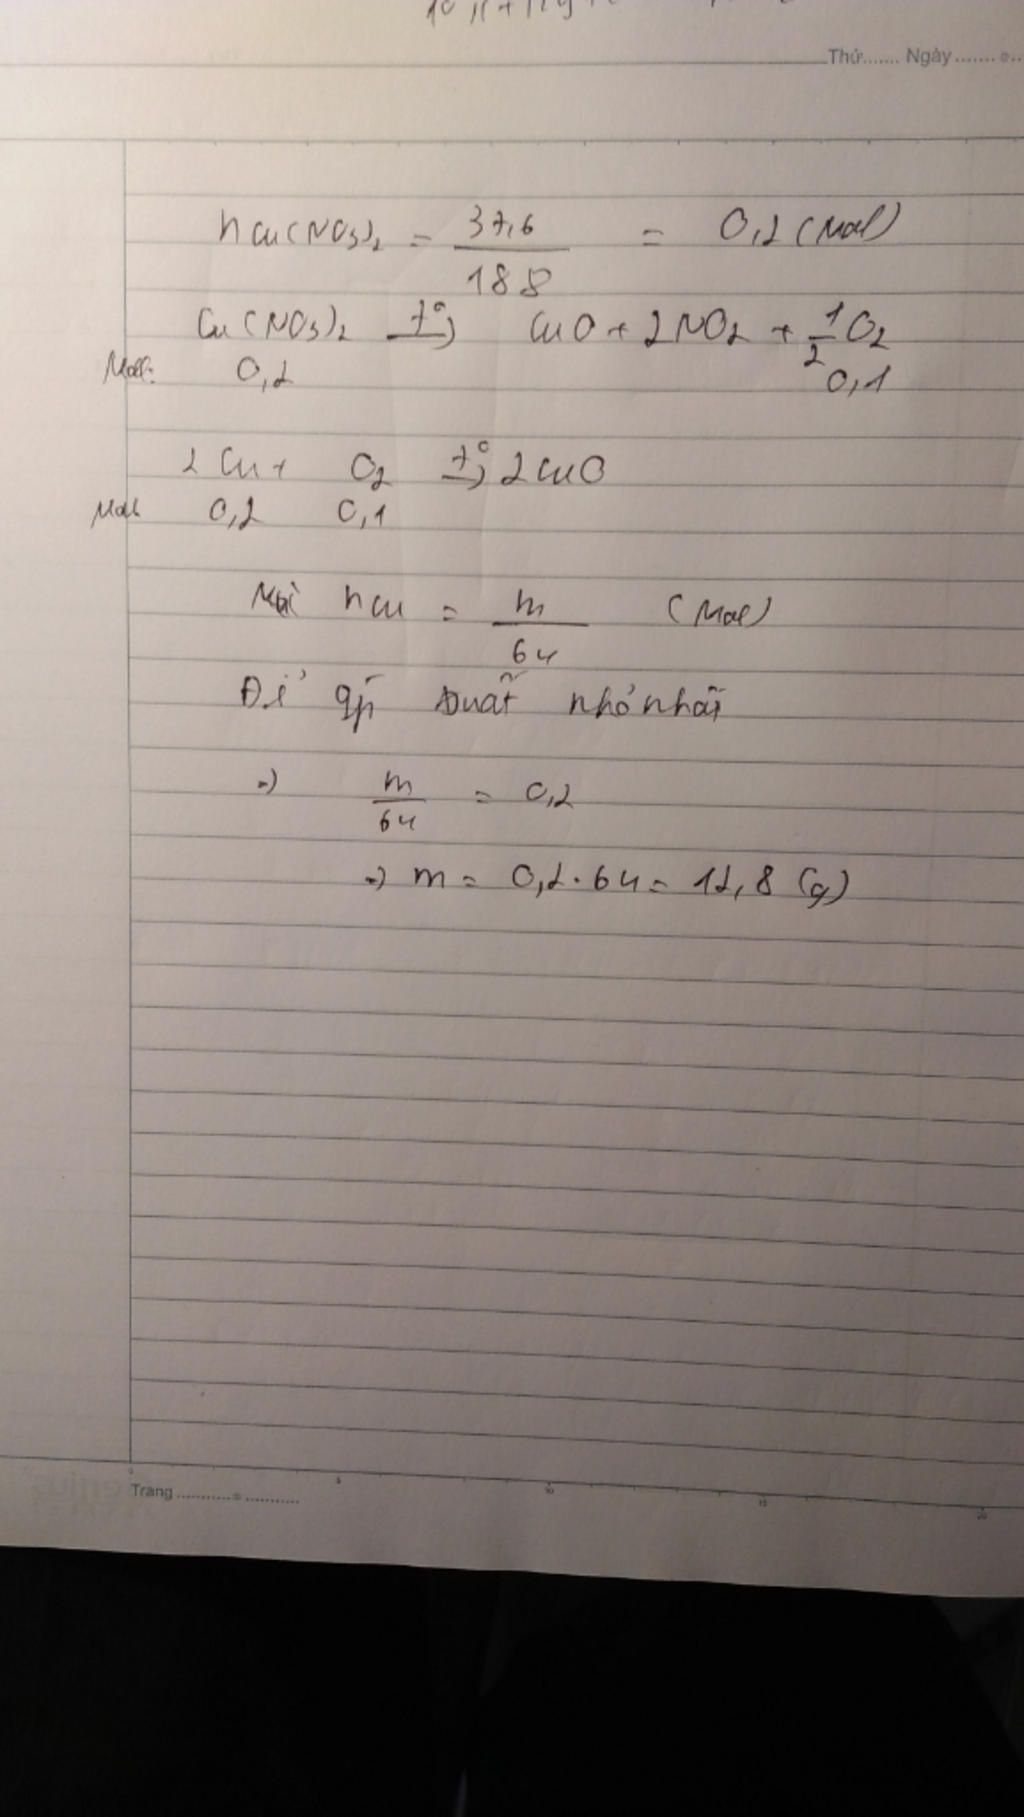 Thứ....... Ngày .......
nCu(NO3)2 = 37,6 / 188 = 0,2 (Mol)
Cu(NO3)2 t°→ CuO + 2NO2 + 1/2 O2
Mol: 0,2 0,1
2Cu + O2 t°→ 2CuO
Mol 0,2 0,1
Mà nCu = m / 64 (Mol)
Để áp suất nhỏ nhất
=> m / 64 = 0,2
=> m = 0,2 . 64 = 12,8 (g)
Trang ........... ...........
5 10 15 20